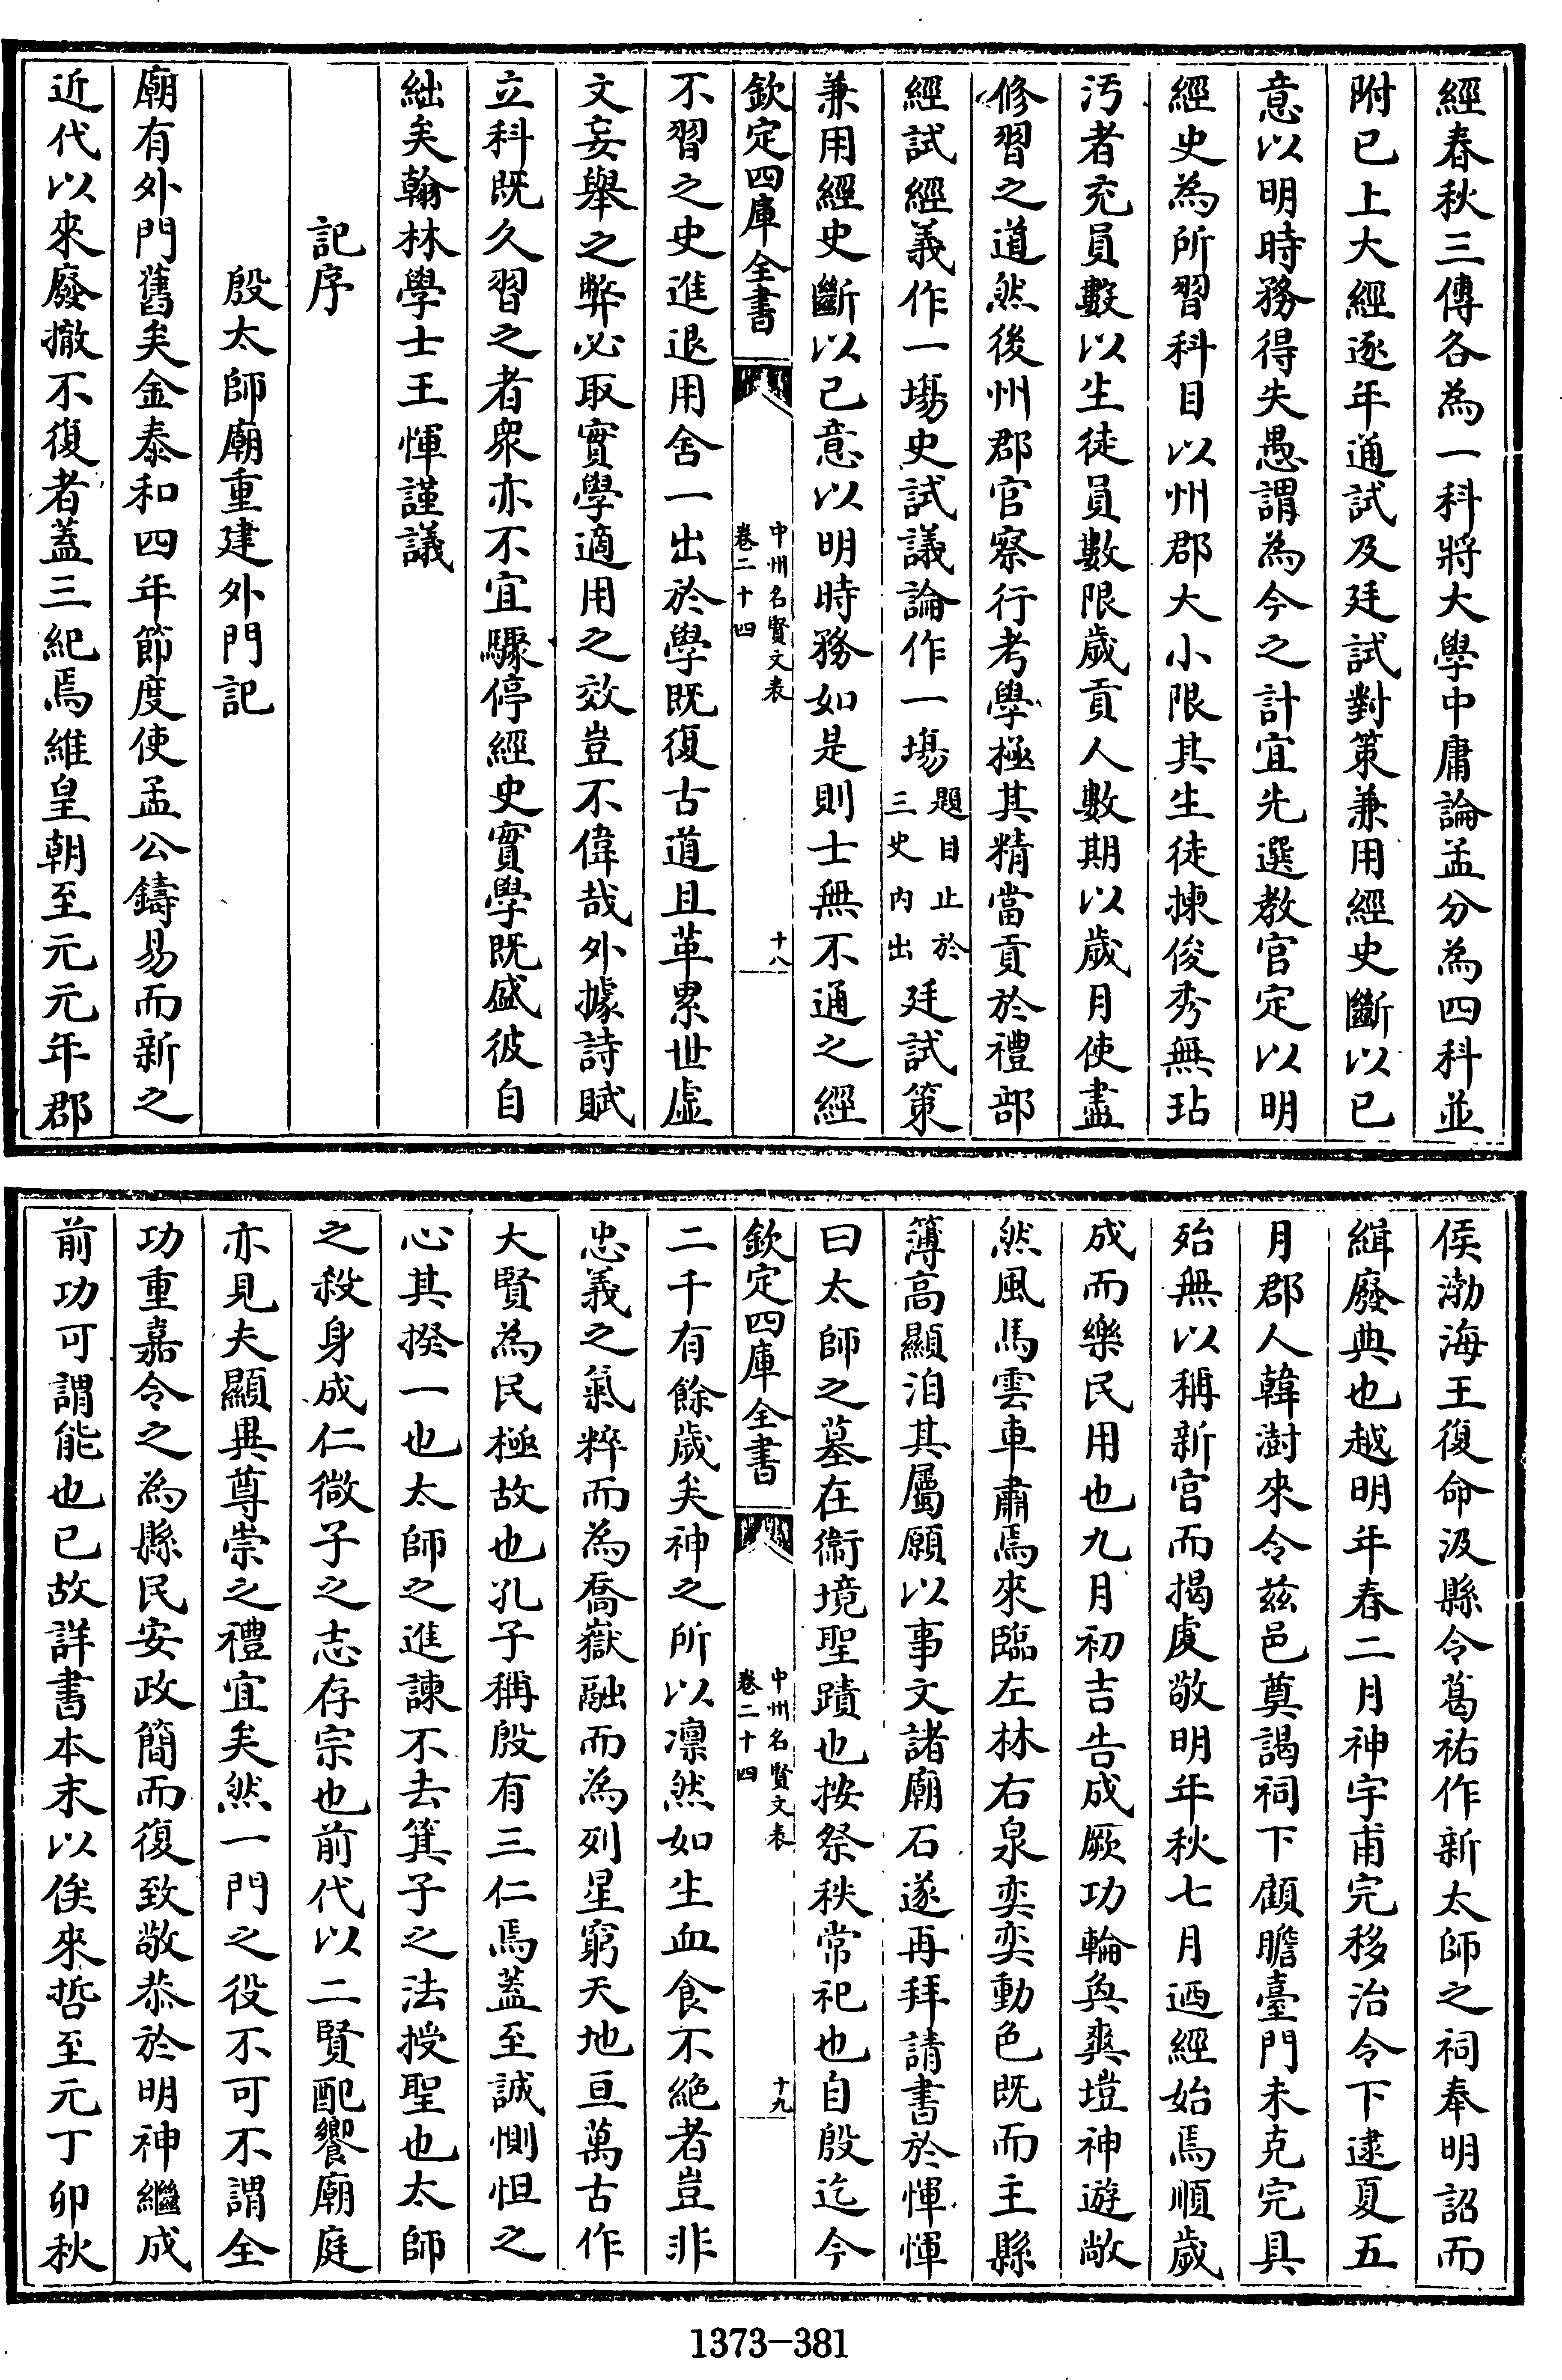 經春秋三傳各為一科將大學中庸論孟分為四科並
附已上大經逐年通試及廷試對策兼用經史斷以已
意以明時務得失愚謂為今之計宜先選教官定以明
經史為所習科目以州郡大小限其生徒揀俊秀無玷
汚者充員數以生徒員數限歲貢人數期以歲月使盡
修習之道然後州郡官察行考學極其精當貢於禮部
經試經義作一塲史試議論作一塲題目止於三史内出廷試策
兼用經史斷以己意以明時務如是則士無不通之經
欽定四庫全書
中州名賢文表
卷二十四
十八
不習之史進退用舍一出於學既復古道且革累世虛
文妄舉之弊必取實學適用之效豈不偉哉外據詩賦
立科既久習之者衆亦不宜驟停經史實學既盛彼自
絀矣翰林學士王惲謹議
記序
殷太師廟重建外門記
廟有外門舊矣金泰和四年節度使孟公鑄易而新之
近代以來廢撤不復者蓋三紀焉維皇朝至元元年郡
侯渤海王復命汲縣令葛祐作新太師之祠奉明詔而
緝廢典也越明年春二月神宇甫完移治令下逮夏五
月郡人韓澍來令茲邑奠謁祠下顧瞻臺門未克完具
殆無以稱新宫而揭虔敬明年秋七月迺經始焉順歲
成而樂民用也九月初吉告成厥功輪奐爽塏神遊敞
然風馬雲車肅焉來臨左林右泉奕奕動色既而主縣
簿高顯洎其屬願以事文諸廟石遂再拜請書於惲惲
曰太師之墓在衞境聖蹟也按祭秩常祀也自殷迄今
欽定四庫全書
中州名賢文表
卷二十四
十九
二千有餘歲矣神之所以凛然如生血食不絶者豈非
忠義之氣粹而為喬嶽融而為列星窮天地亘萬古作
大賢為民極故也孔子稱殷有三仁焉蓋至誠惻怛之
心其揆一也太師之進諫不去箕子之法授聖也太師
之殺身成仁微子之志存宗也前代以二賢配饗廟庭
亦見夫顯異尊崇之禮宜矣然一門之役不可不謂全
功重嘉令之為縣民安政簡而復致敬恭於明神繼成
前功可謂能也已故詳書本末以俟來哲至元丁卯秋
1373-381